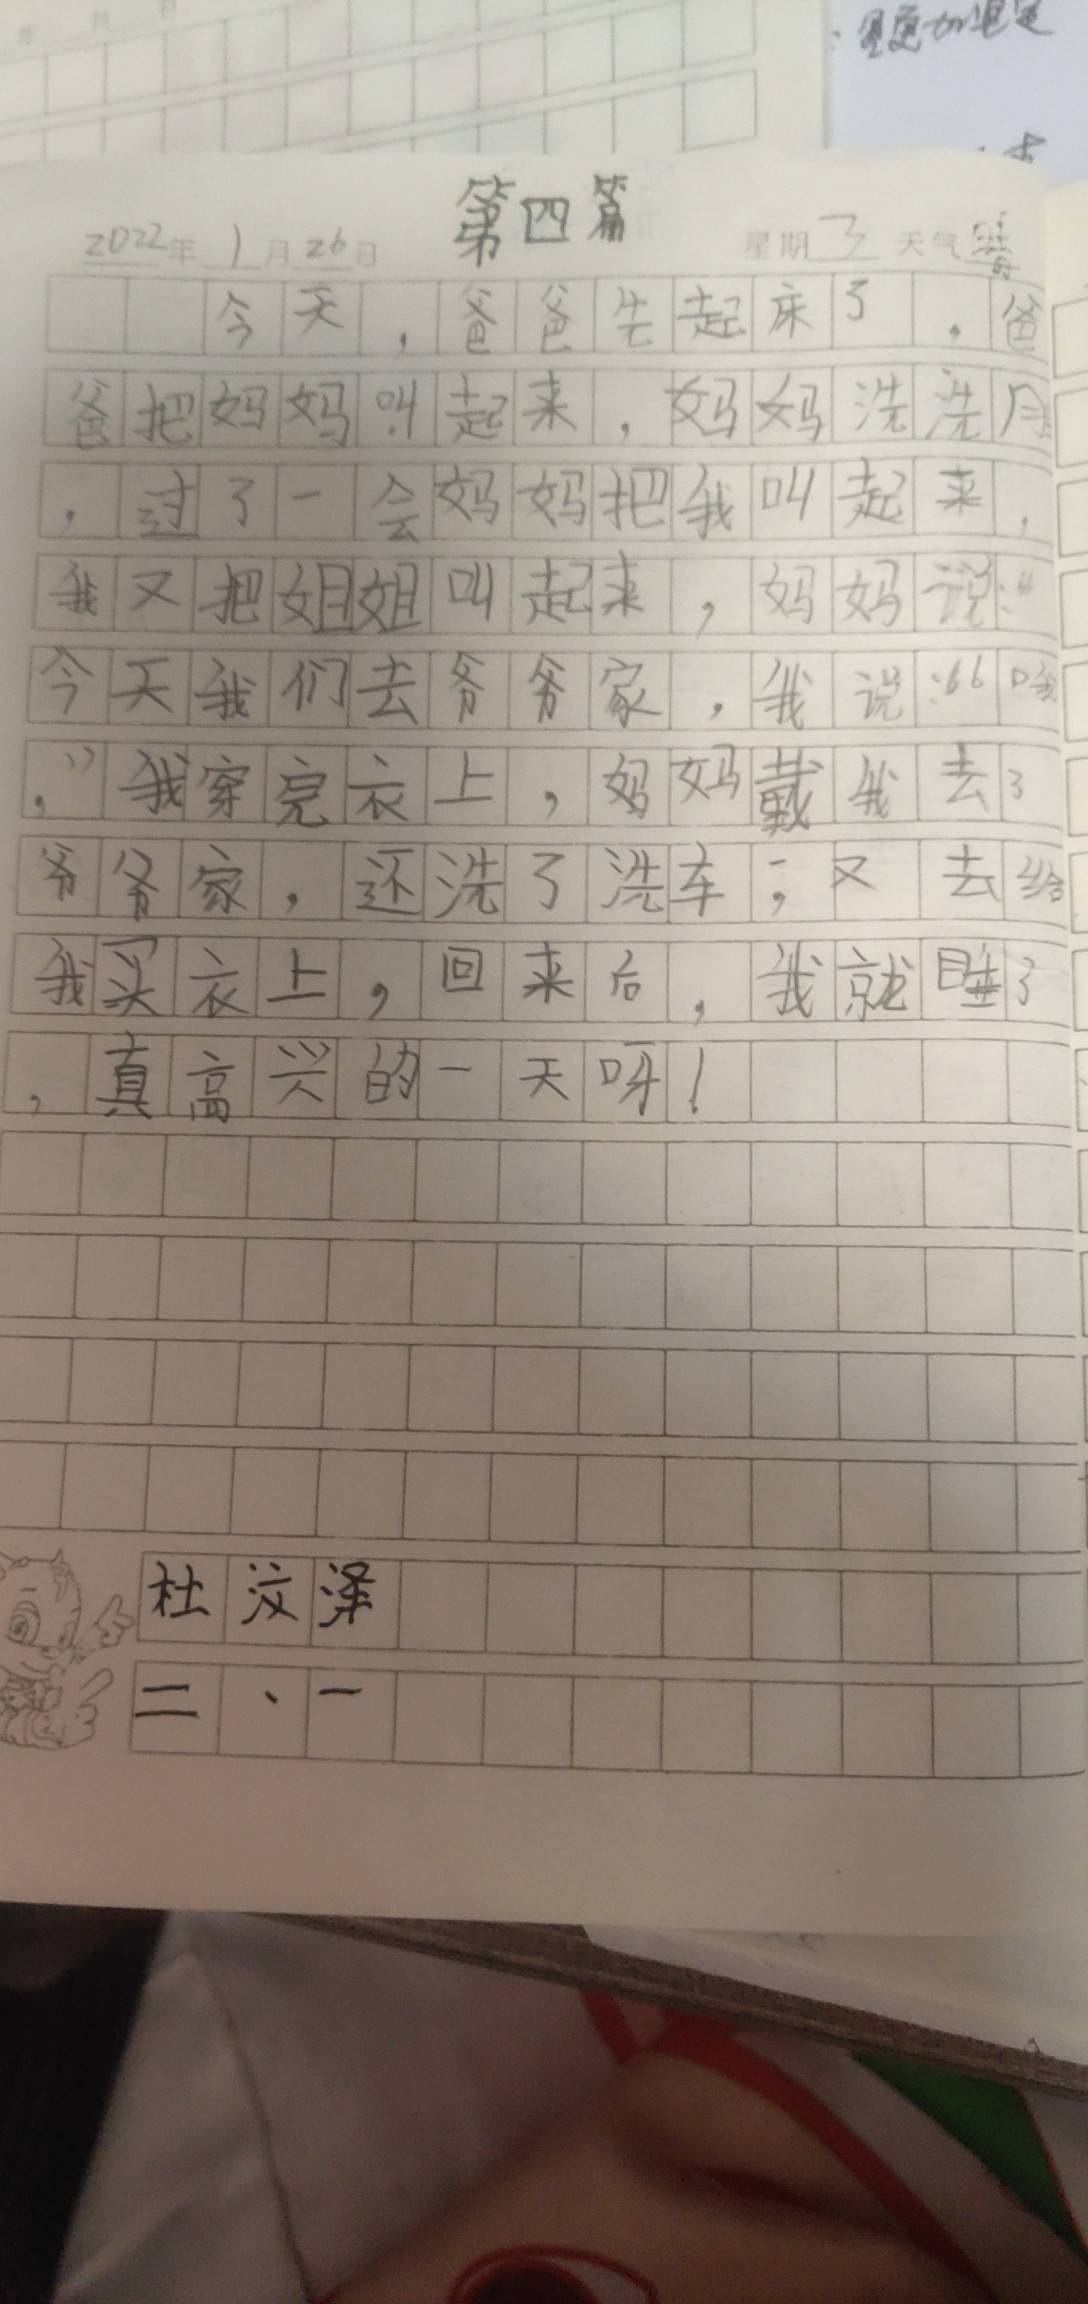 第四篇
2022年1月26日 星期3 天气晴
今天,爸爸先起床了,爸
爸把妈妈叫起来,妈妈洗洗
,过了一会妈妈把我叫起来,
我又把姐姐叫起来,妈妈说:“
今天我们去爷爷家,我说:“哦
,”我穿完衣上,妈妈戴我去了
爷爷家,还洗了洗车;又去给
我买衣上,回来后,我就睡了
,真高兴的一天呀!
杜汶泽
二、一